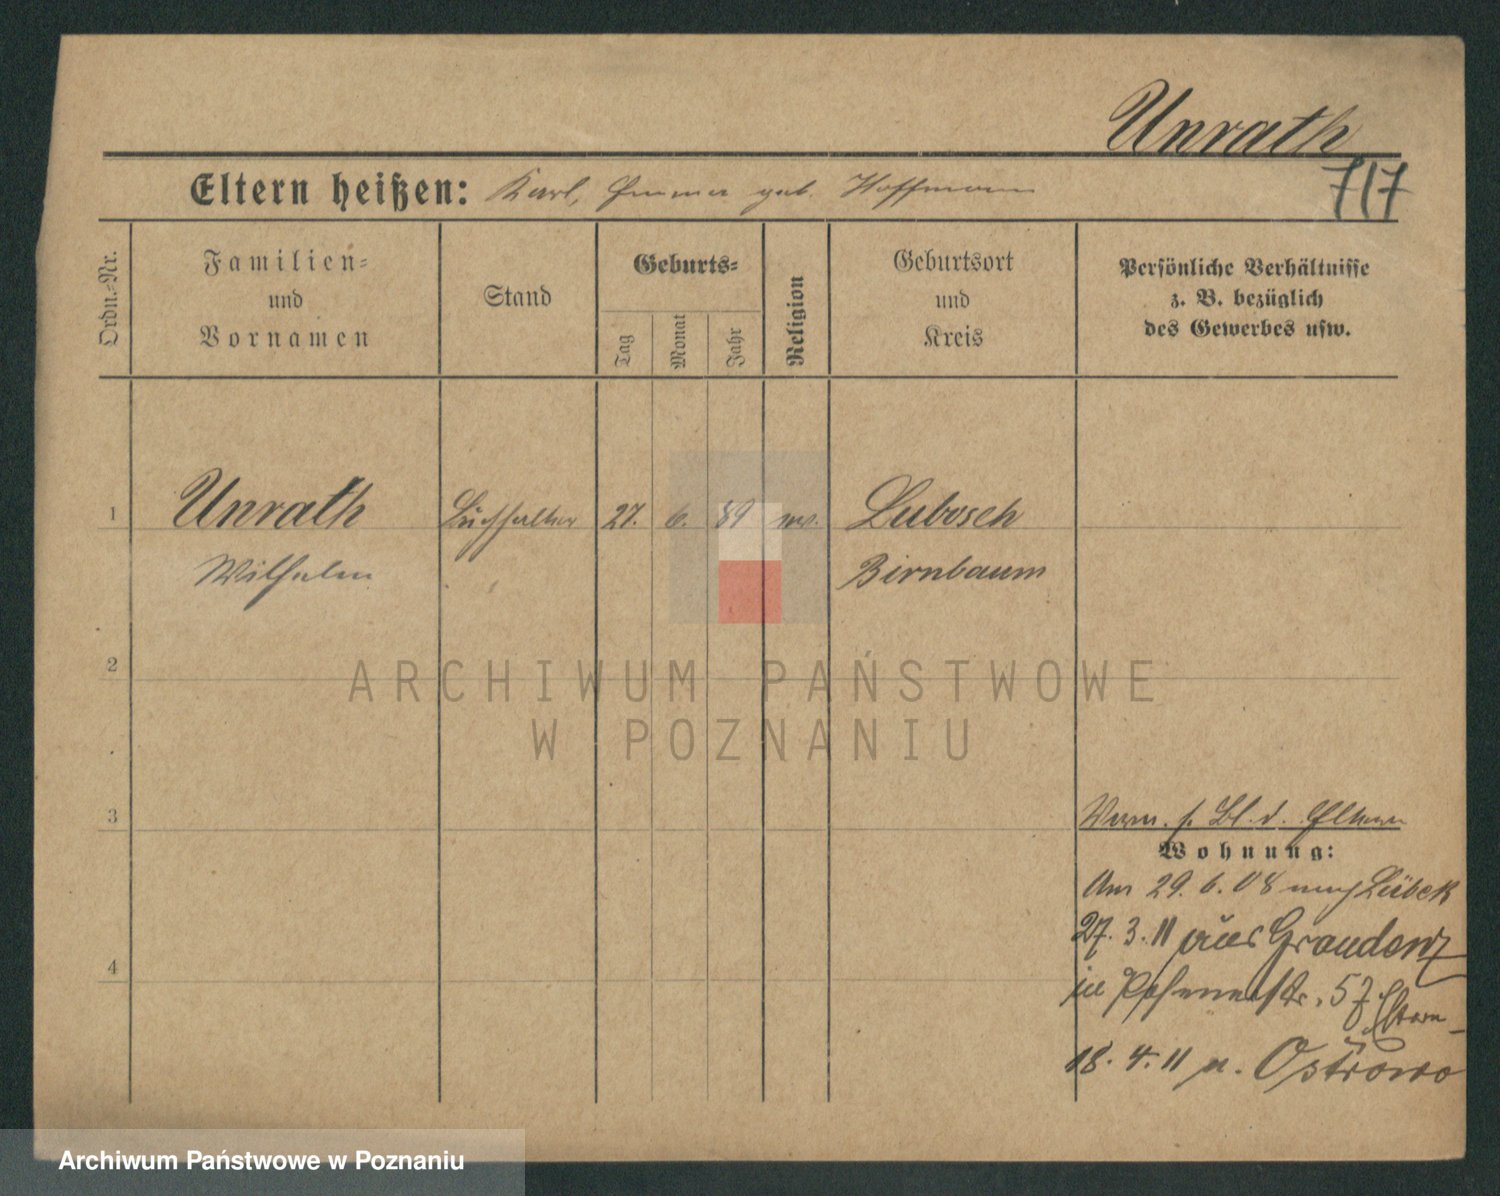 Unrath
717
Eltern heißen: Karl, Emma geb. Hoffmann
Ordn.-Nr.
Familien-
und
Vornamen
Stand
Geburts-
Tag
Monat
Jahr
Religion
Geburtsort
und
Kreis
Persönliche Verhältnisse
z. B. bezüglich
des Gewerbes usw.
1 Unrath Buchhalter 27. 6. 89 Lubosch
Wilhelm Birnbaum
2
ARCHIWUM PAŃSTWOWE
W POZNANIU
3
Verm. s. Bl. d. Eltern
Wohnung:
Am 29. 6. 08 nach Lübeck
27. 3. 11 aus Graudenz
4
57 Eltern
18. 4. 11 n. Ostrowo
Archiwum Państwowe w Poznaniu